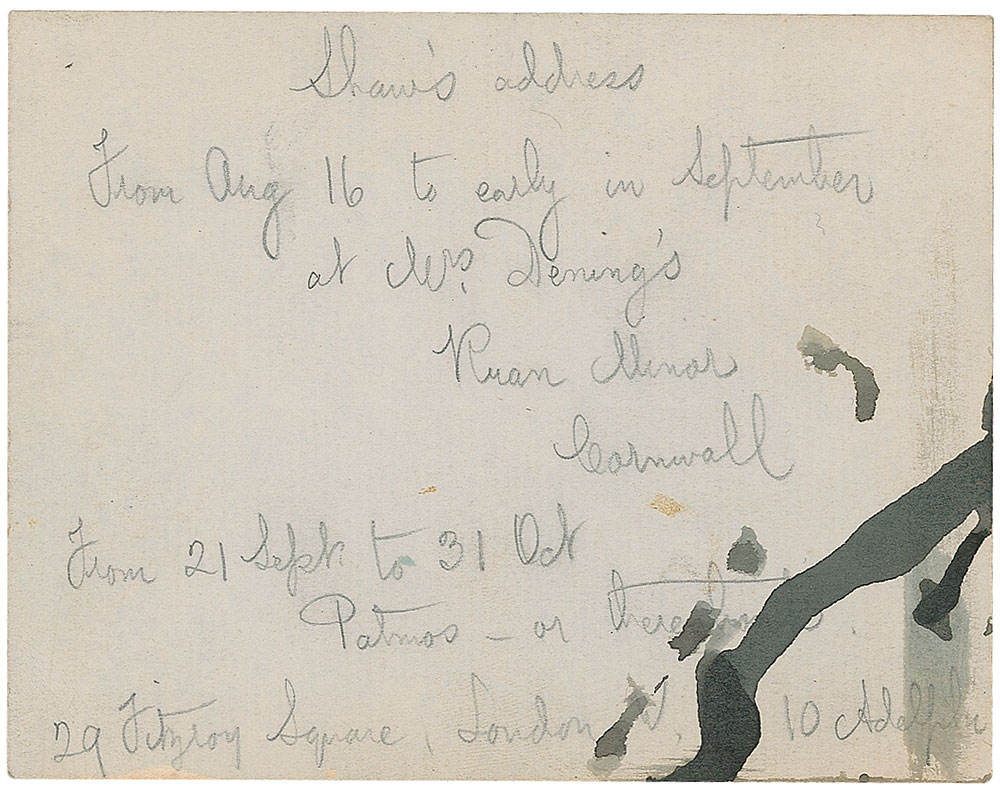 Shaw's address
From Aug 16 to early in September
at Mrs. Dening's
Ruan Minor
Cornwall
From 21 Sept to 31 Oct
Patmos – or
29 Fitzroy Square, London W. 10 Adelphi